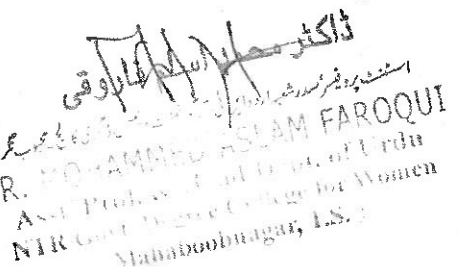 ڈاکٹر محمد اسلم فاروقی
اسسٹنٹ پروفیسر صدر شعبہ
R. MOHAMMED ASLAM FAROQUI
Asst. Professor and Dept. of Urdu
NTR Govt. Degree College for Women
Mahaboobnagar, T.S.